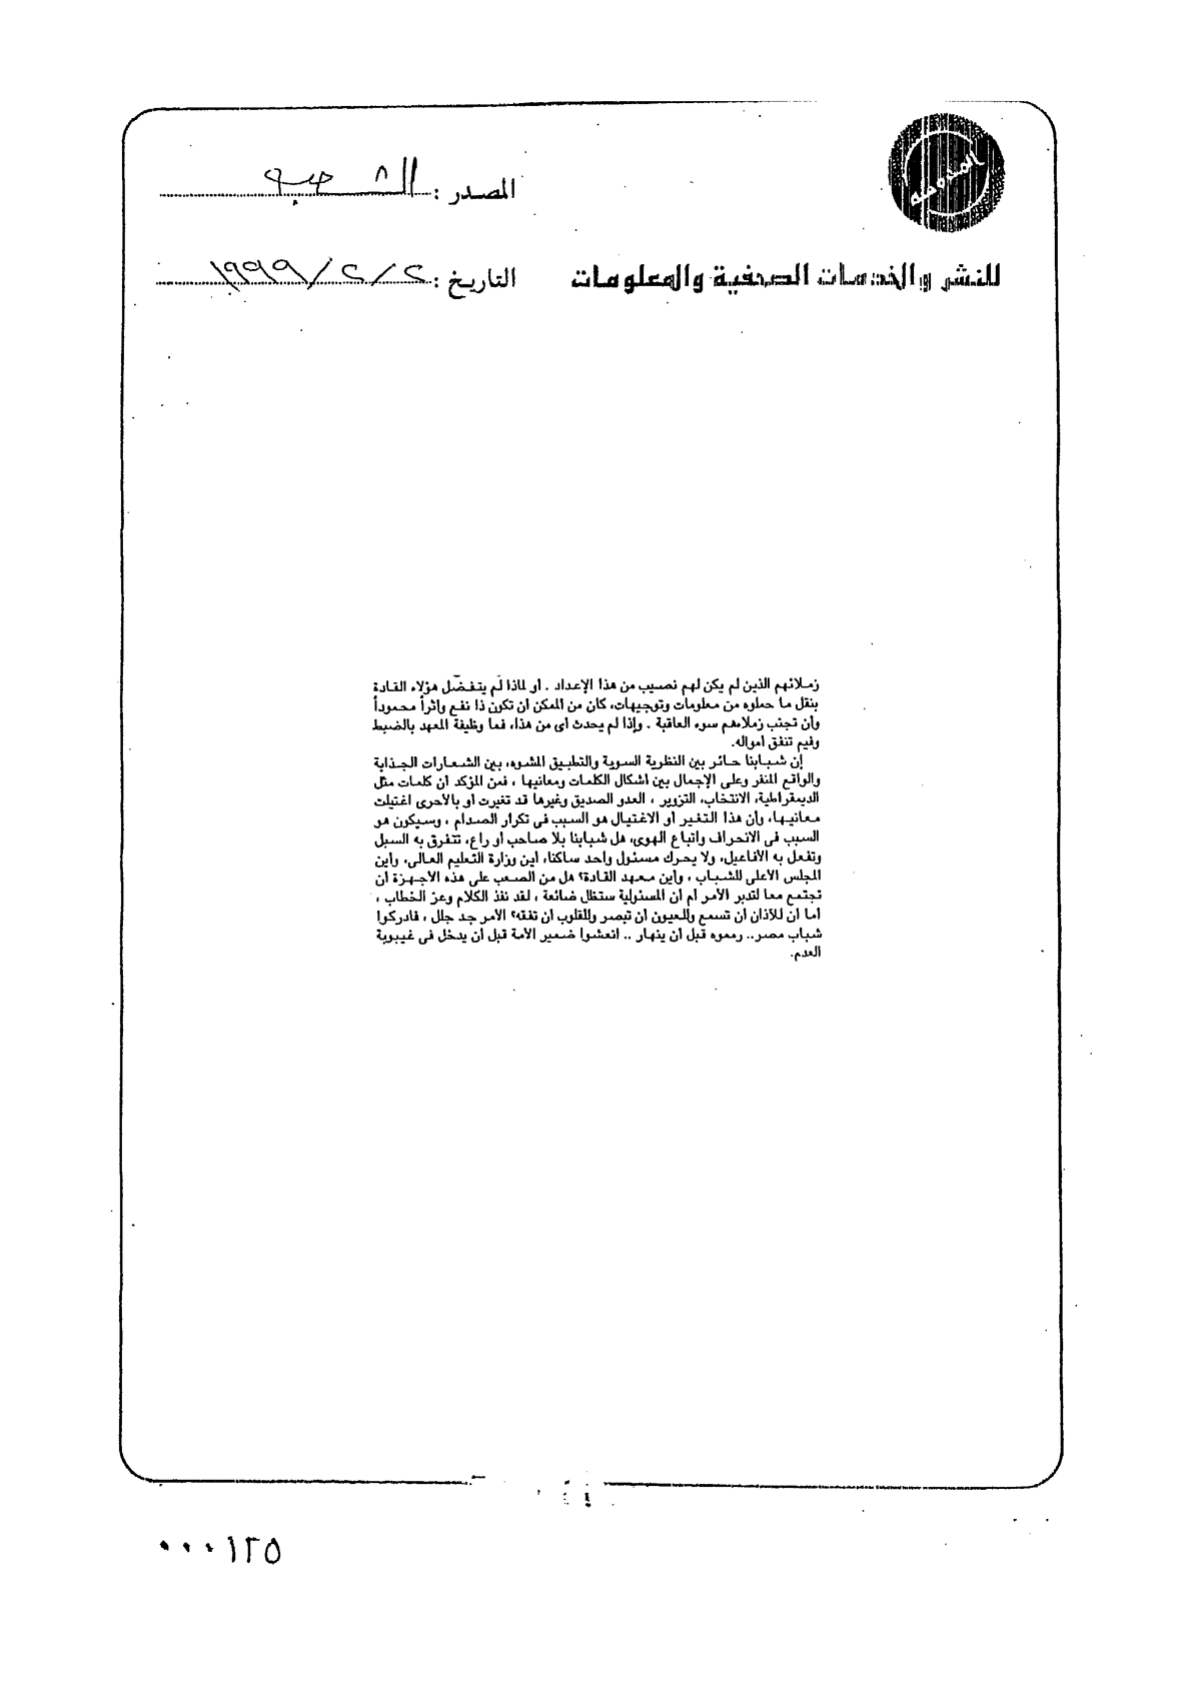 المدوحه
المصدر : الشعب
للنشر والخدمات الصحفية والمعلومات
التاريخ : ٢/٢/١٩٩٩
زملائهم الذين لم يكن لهم نصيب من هذا الإعداد . او لماذا لم يتفضّل هؤلاء القادة
بنقل ما حملوه من معلومات وتوجيهات، كان من الممكن ان تكون ذا نفع واثراً محموداً
وان تجنب زملاءهم سوء العاقبة . وإذا لم يحدث اى من هذا، فما وظيفة المعهد بالضبط
وفيم تنفق امواله.
إن شبابنا حائر بين النظرية السوية والتطبيق المشوه، بين الشعارات الجذابة
والواقع المنفر وعلى الإجمال بين اشكال الكلمات ومعانيها ، فمن المؤكد ان كلمات مثل
الديمقراطية، الانتخاب، التزوير ، العدو الصديق وغيرها قد تغيرت او بالأحرى اغتيلت
معانيها، وإن هذا التغير او الاغتيال هو السبب فى تكرار الصدام ، وسيكون هو
السبب فى الانحراف واتباع الهوى، هل شبابنا بلا صاحب او راع، تتفرق به السبل
وتفعل به الأفاعيل، ولا يحرك مسئول واحد ساكنا، اين وزارة التعليم العالى، واين
المجلس الأعلى للشباب ، واين معهد القادة؟ هل من الصعب على هذه الأجهزة ان
تجتمع معا لتدبر الأمر ام ان المسئولية ستظل ضائعة ، لقد نفذ الكلام وعز الخطاب ،
اما ان للآذان ان تسمع وللعيون ان تبصر وللقلوب ان تفقه؟ الأمر جد جلل ، فادركوا
شباب مصر.. رمموه قبل ان ينهار .. انعشوا ضمير الأمة قبل أن يدخل فى غيبوبة
العدم.
٠٠٠١٢٥